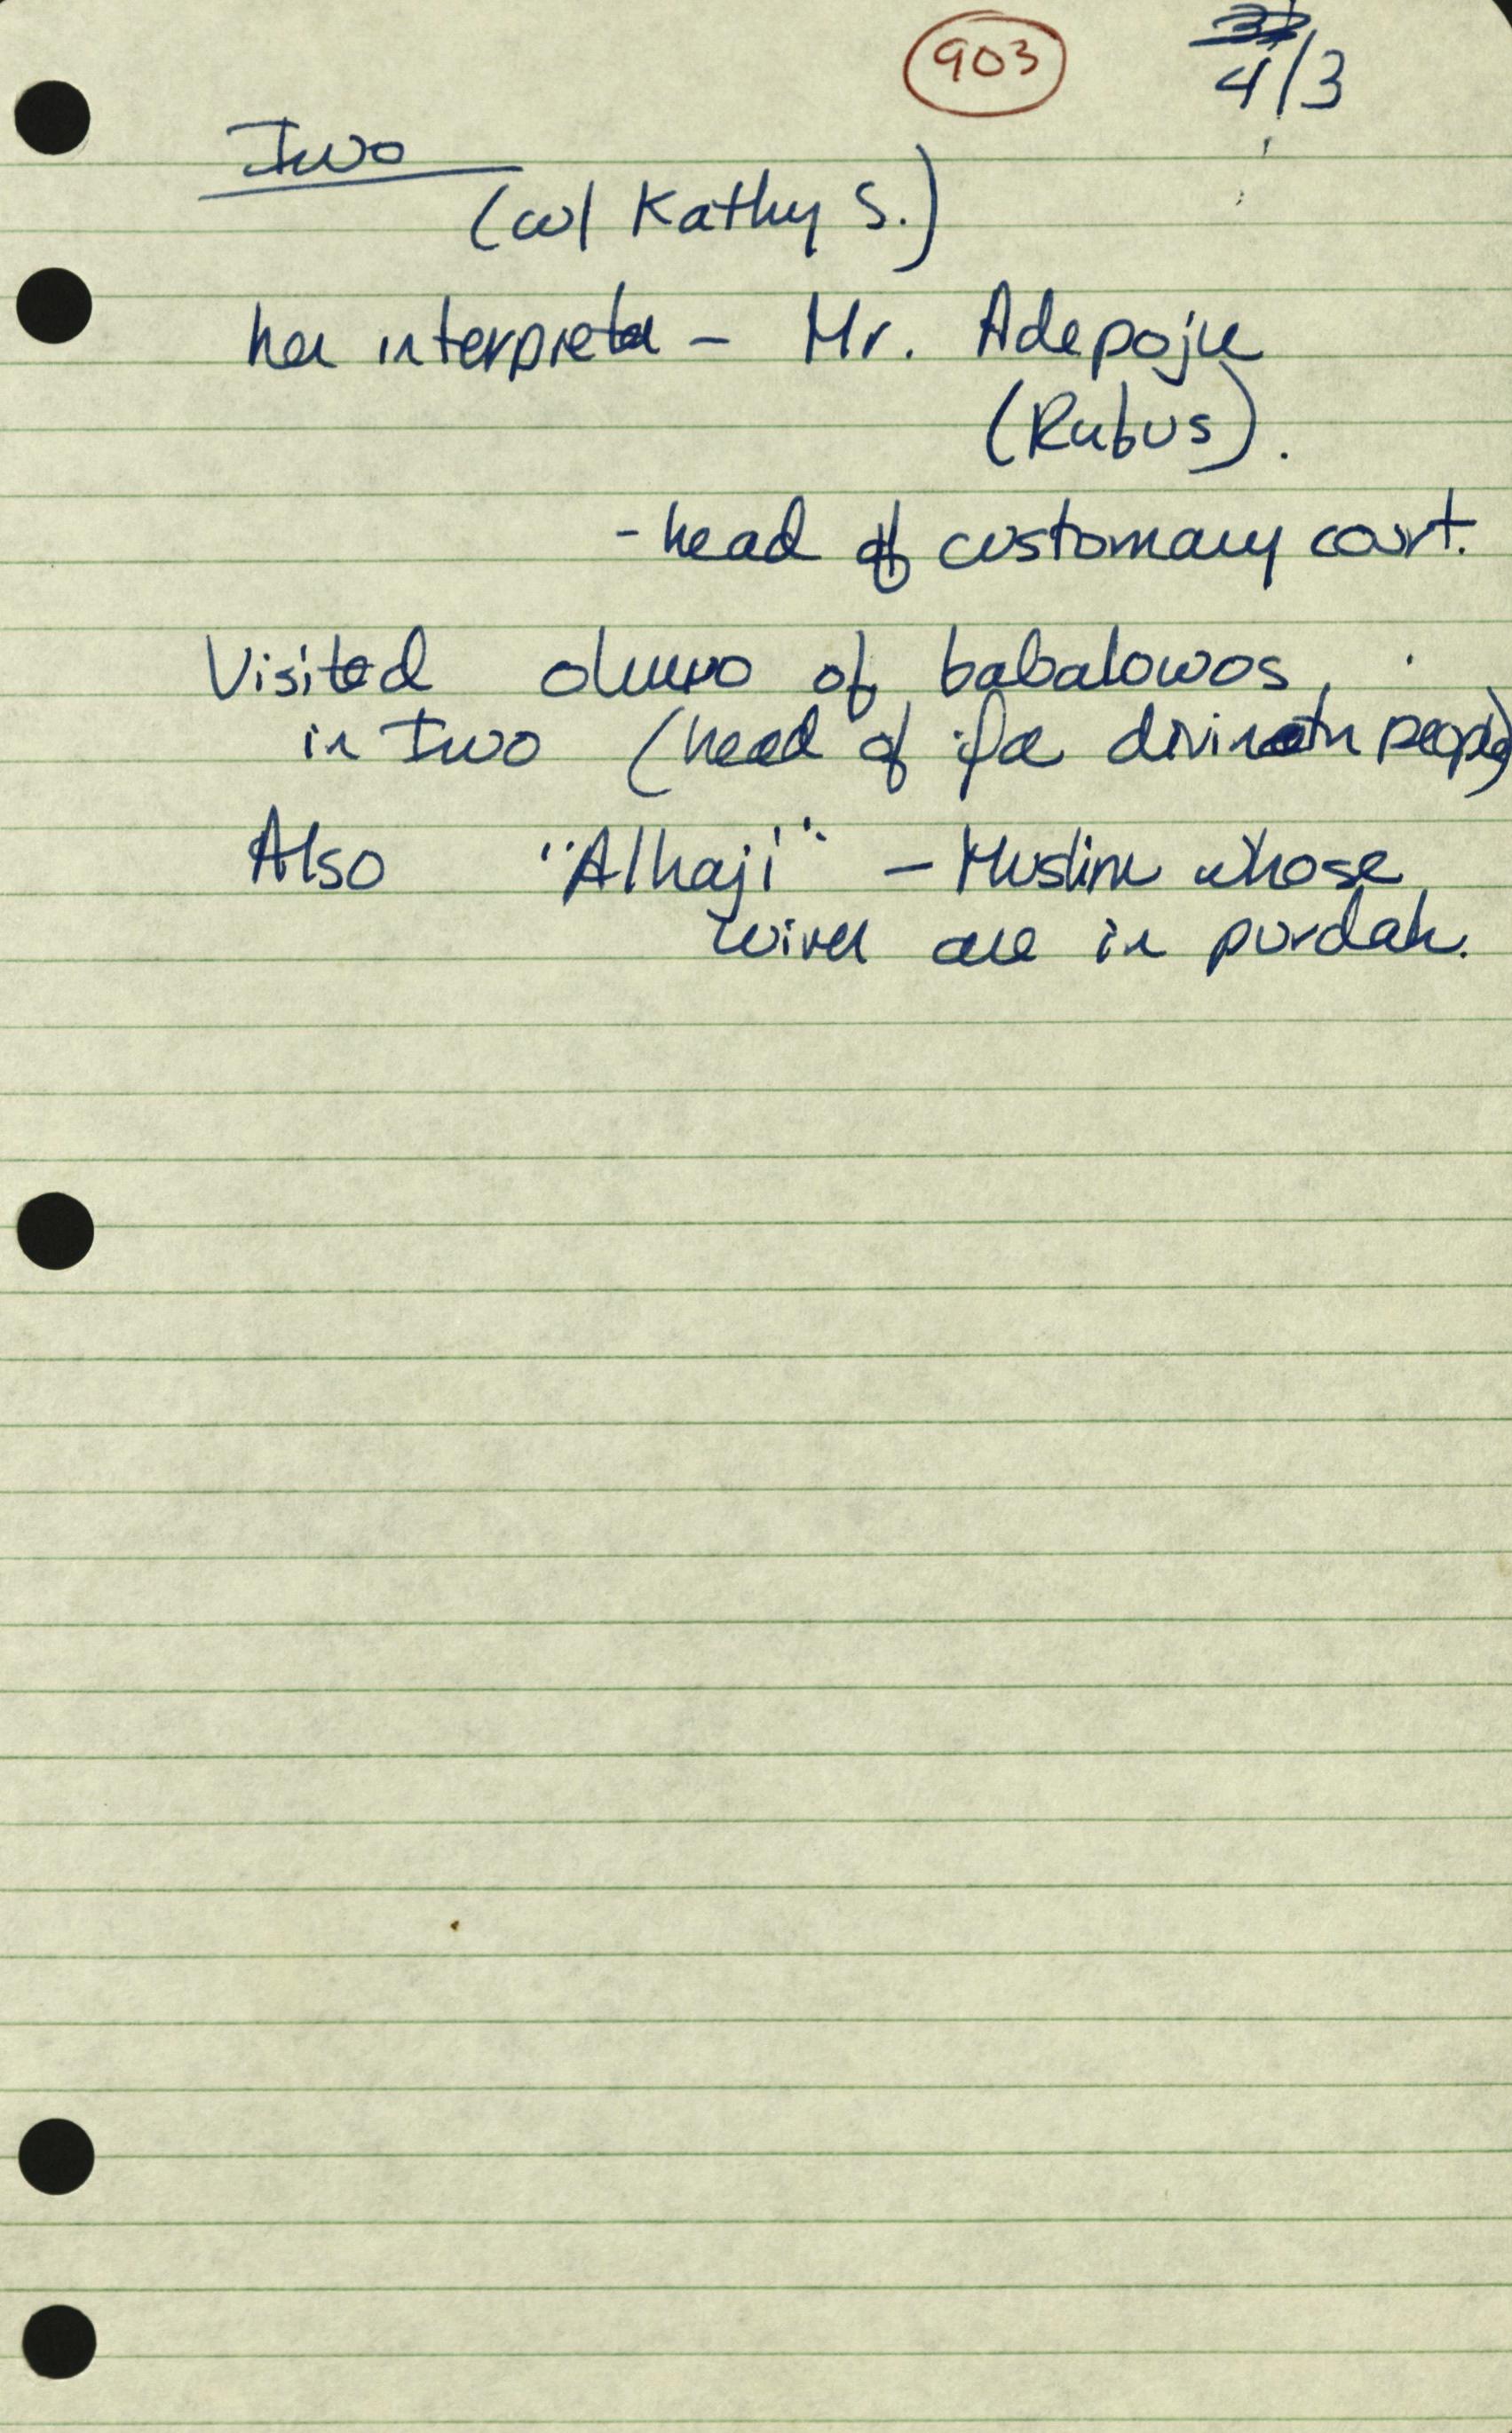 903
4/3
Iwo
(w/ Kathy S.)
her interpreter - Mr. Adepoju
(Rufus).
- head of customary court.
Visited oluwo of babalowos
in Iwo (head of ifa divinatn people)
Also "Alhaji" - Muslim whose
wives are in purdah.